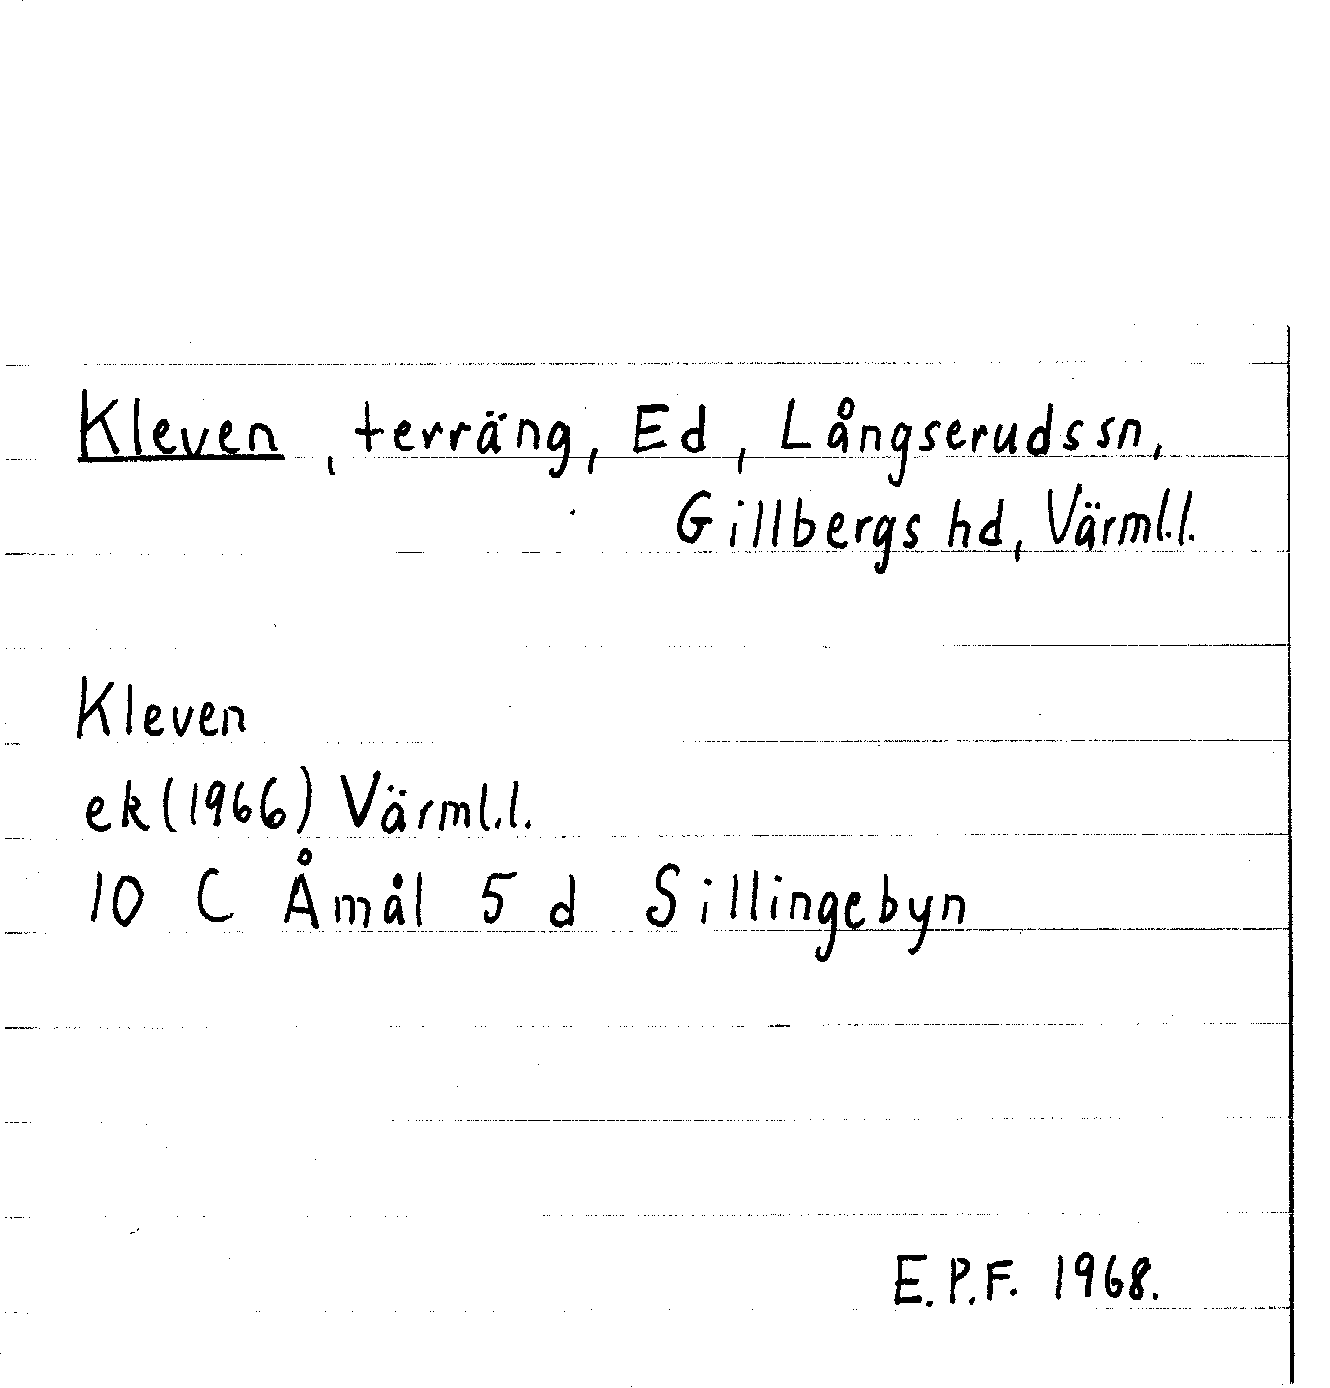 Kleven, terräng, Ed, Långseruds sn,
Gillbergs hd, Värml.l.
Kleven
ek (1966) Värml.l.
10 C Åmål 5 d Sillingebyn
E.P.F. 1968.